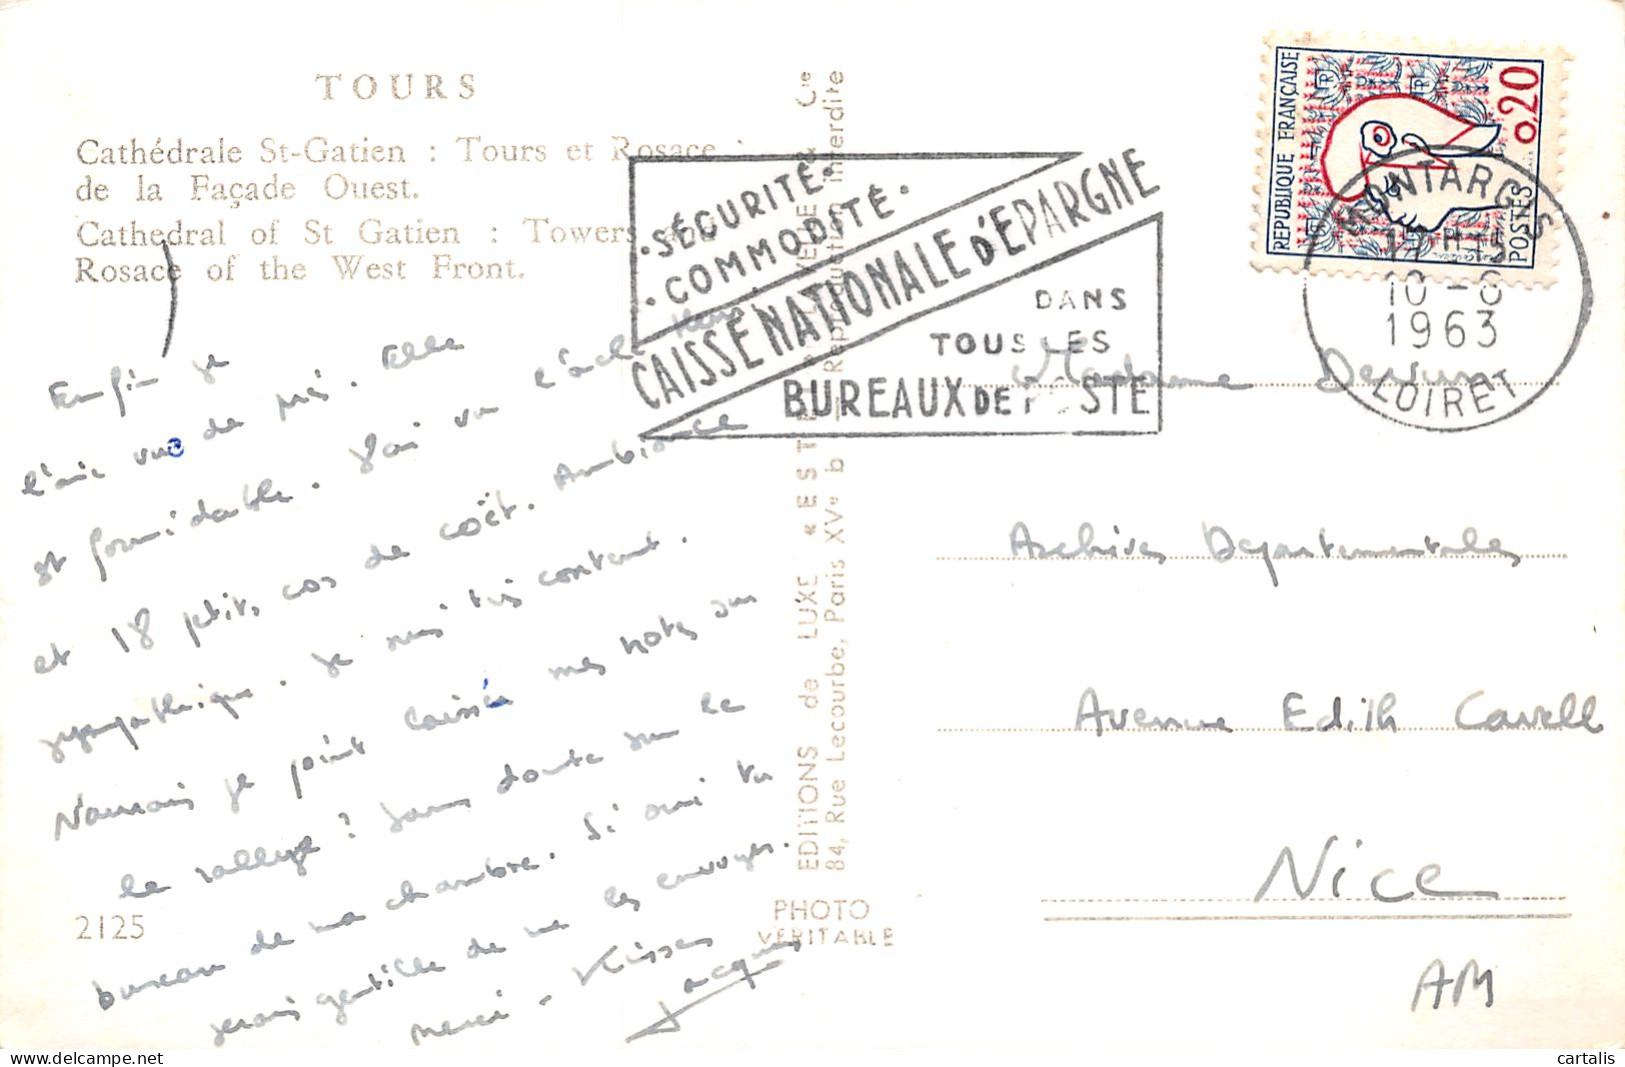 TOURS
Cathédrale St-Gatien : Tours et Rosace
de la Façade Ouest.
Cathedral of St Gatien : Towers and
Rosace of the West Front.
Enfin je
l'ai vue de près. Elle
est formidable. J'ai vu l'école
et 18 petits cos de coët. Ambiance
sympathique. Je suis très content.
N'aurais je point laissé mes notes sur
le rallye ? Sans doute sur le
bureau de ma chambre. Si oui tu
serais gentille de me les envoyer.
merci - Kisses
Jacques
2125
EDITIONS de LUXE « ESTEL
84, Rue Lecourbe, Paris XVe b Reproduction interdite
PHOTO
VERITABLE
• SÉCURITÉ •
• COMMODITÉ •
CAISSE NATIONALE D'EPARGNE
DANS
TOUS LES
BUREAUX DE POSTE
REPUBLIQUE FRANÇAISE
0,20
POSTES
MONTARGIS
1963
LOIRET
Madame
Archives Départementales
Avenue Edith Cavell
Nice
AM
cartalis